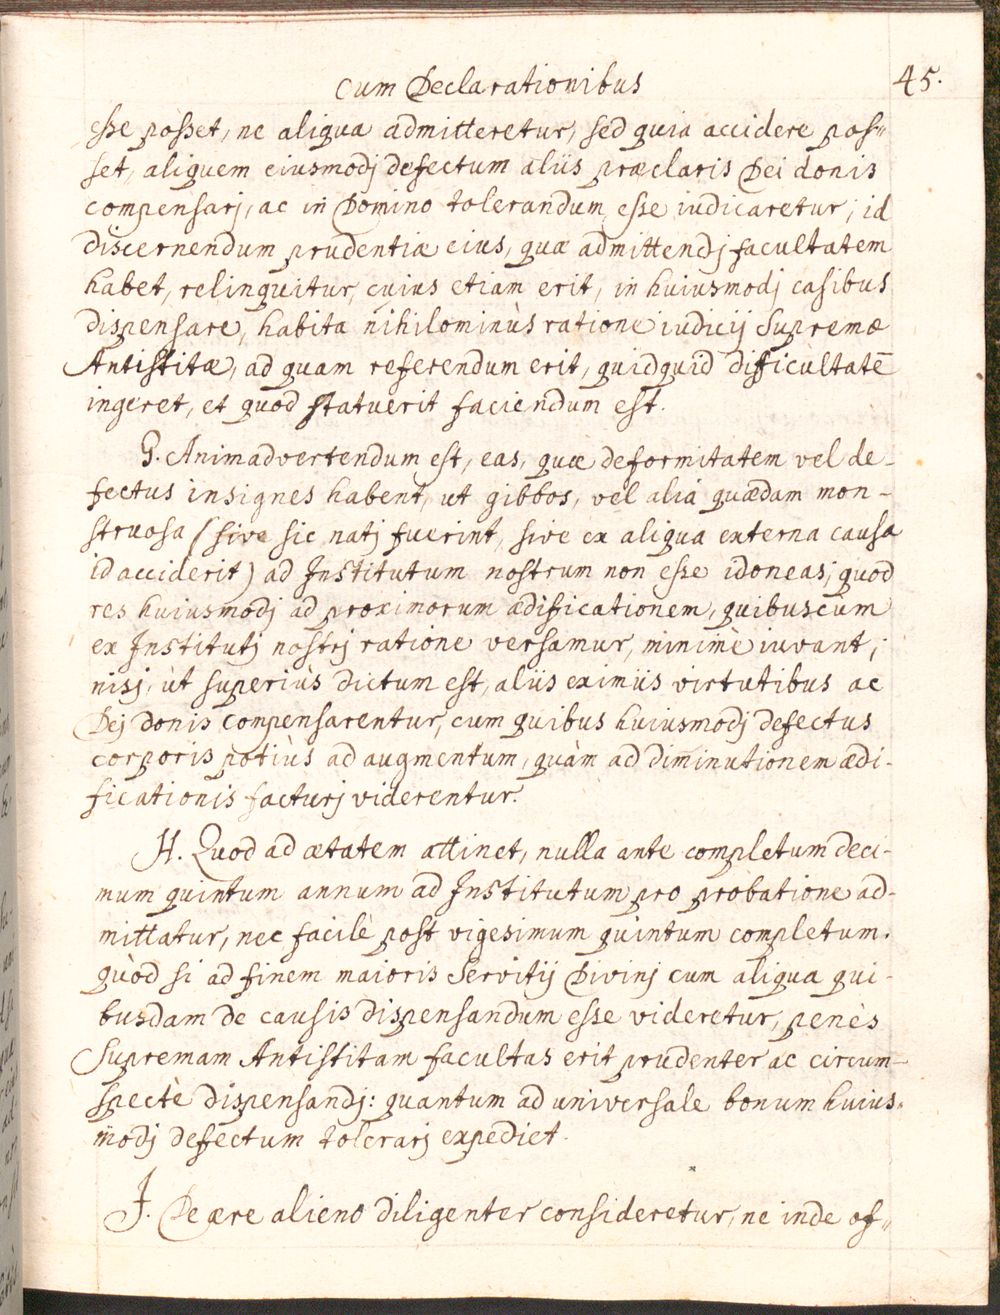 cum Declarationibus 45.
esse posset, ne aliqua admitteretur, sed quia accidere pos„
set, aliquem eiusmodj defectum aliis præclaris Dei donis
compensarj, ac in Domino tolerandum esse iudicaretur; id
discernendum prudentiæ eius, quæ admittendj facultatem
habet, relinquitur, cuius etiam erit, in huiusmodj casibus
dispensare, habita nihilominùs ratione iudicij Supremæ
Antistitæ, ad quam referendum erit, quidquid difficultatē
ingeret, et quod statuerit faciendum est.
G. Animadvertendum est, eas, quæ deformitatem vel de-
fectus insignes habent, ut gibbos, vel alia quædam mon-
struosa (sive sic natj fuerint, sive ex aliqua externa causa
id acciderit) ad Institutum nostrum non esse idoneas; quod
res huiusmodj ad proximorum ædificationem, quibuscum
ex Institutj nostrj ratione versamur, minimè iuvant;
nisj, ùt superiùs dictum est, aliis eximiis virtutibus ac
Dej donis compensarentur, cum quibus huiusmodj defectus
corporis potiùs ad augmentum, quàm ad diminutionem ædi-
ficationis facturj viderentur.
H. Quod ad ætatem attinet, nulla ante completum deci-
mum quintum annum ad Institutum pro probatione ad-
mittatur, nec facilè post vigesimum quintum completum.
quòd si ad finem maioris Servitij Divinj cum aliqua qui-
busdam de causis dispensandum esse videretur, penès
Supremam Antistitam facultas erit prudenter ac circum-
spectè dispensandj: quantum ad universale bonum huius„
modj defectum tolerarj expediet.
J. De ære alieno diligenter consideretur, ne inde of„